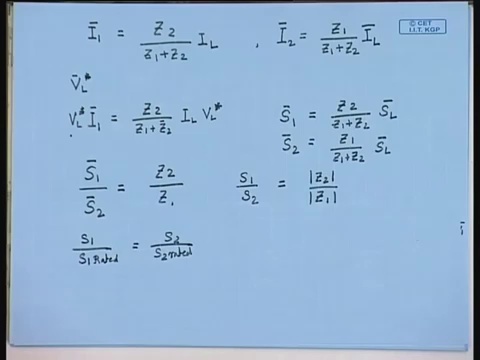 Ī₁ = Z₂ / (Z₁+Z₂) I_L , Ī₂ = Z₁ / (Z₁+Z₂) Ī_L
© CET
I.I.T. KGP
V̄_L*
V_L* Ī₁ = Z₂ / (Z₁+Z₂) I_L V_L*
S̄₁ = Z₂ / (Z₁+Z₂) S̄_L
S̄₂ = Z₁ / (Z₁+Z₂) S̄_L
S̄₁ / S̄₂ = Z₂ / Z₁
S₁ / S₂ = |Z₂| / |Z₁|
S₁ / S₁Rated = S₂ / S₂rated